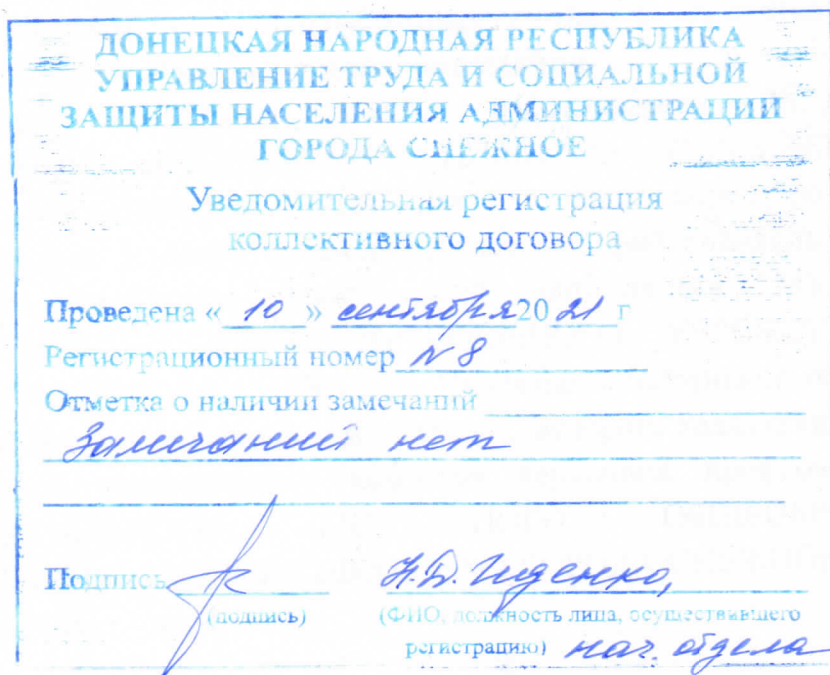 ДОНЕЦКАЯ НАРОДНАЯ РЕСПУБЛИКА
УПРАВЛЕНИЕ ТРУДА И СОЦИАЛЬНОЙ
ЗАЩИТЫ НАСЕЛЕНИЯ АДМИНИСТРАЦИИ
ГОРОДА СНЕЖНОЕ
Уведомительная регистрация
коллективного договора
Проведена « 10 » сентября 2021 г
Регистрационный номер N 8
Отметка о наличии замечаний
Замечаний нет
Подпись Н.Д.
(подпись) (ФИО, должность лица, осуществившего
регистрацию) нач. отдела